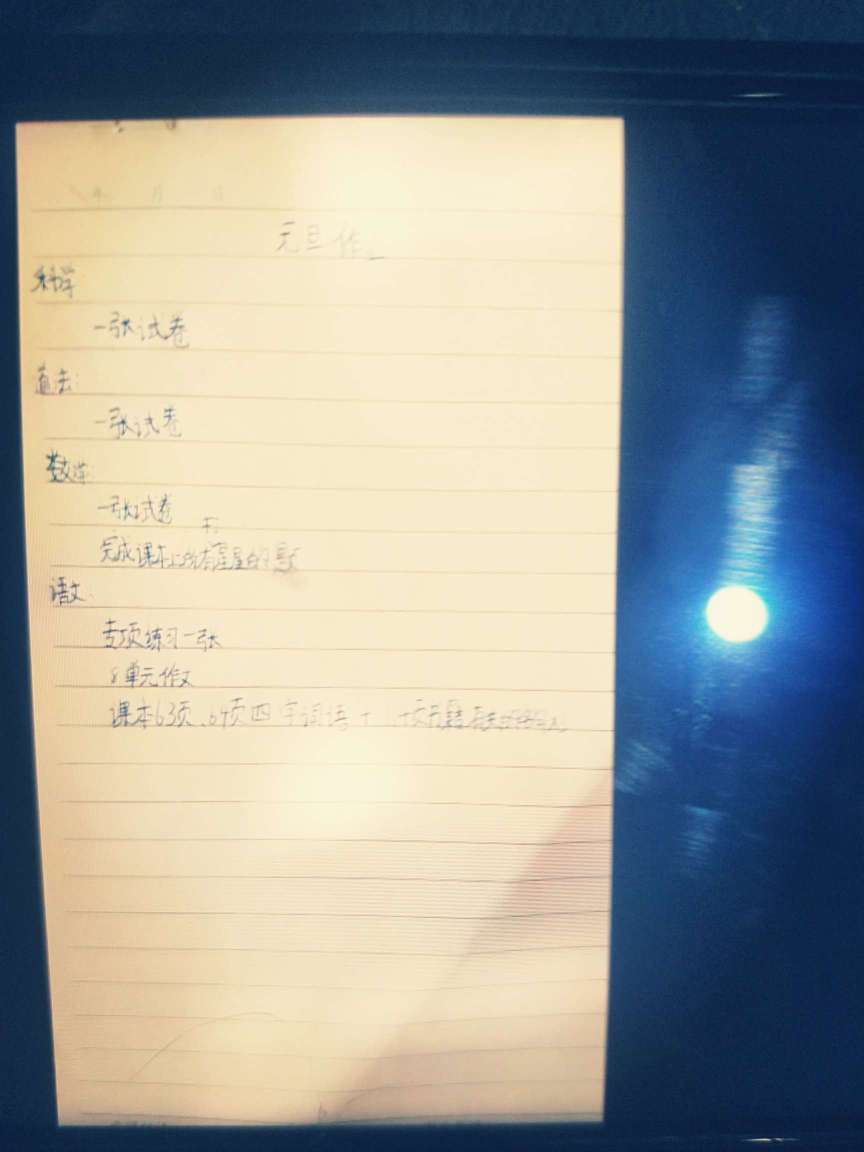 年 月 日
元旦作
科学
一张试卷
道法:
一张试卷
数学:
一张试卷
打
完成课本上所有星星的题
语文:
专项练习一张
8单元作文
课本63页、64页四字词语+